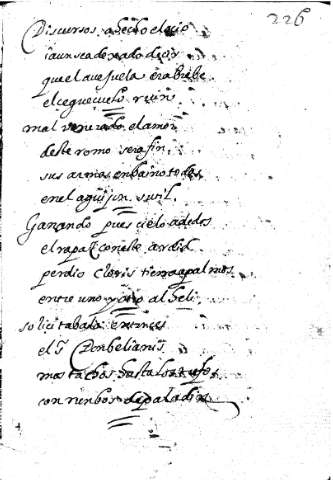 226
Discursos a hecho el
iaun sea dexado decir
que el avejuela era breve
el ceguecuelo ruin
mal venerado el amor
deste romo serafin
sus armas embaino todas
en el aguijon sutil
Ganando pues cielo a dedos
el rapaz con este ardid
perdio Cloris tierra a palmos
entre uno y otro al heli
solicitabala entonces
el Sr Don belianis
mostachos hasta las
con rumbos de paladin